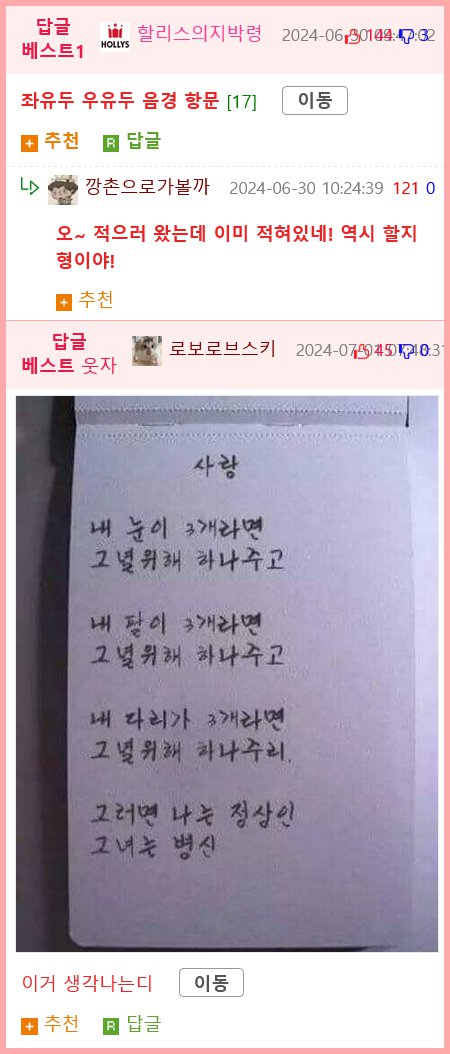 답글
베스트1
HOLLYS
할리스의지박령
2024-06-30
3
좌유두 우유두 음경 항문 [17] 이동
추천 R 답글
깡촌으로가볼까 2024-06-30 10:24:39 121 0
오~ 적으러 왔는데 이미 적혀있네! 역시 할지
형이야!
추천
답글
베스트 웃자
로보로브스키
45 0
사랑
내 눈이 3개라면
그녈위해 하나주고
내 팔이 3개라면
그녈위해 하나주고
내 다리가 3개라면
그녈위해 하나주리.
그러면 나는 정상인
그녀는 병신
이거 생각나는디 이동
추천 R 답글